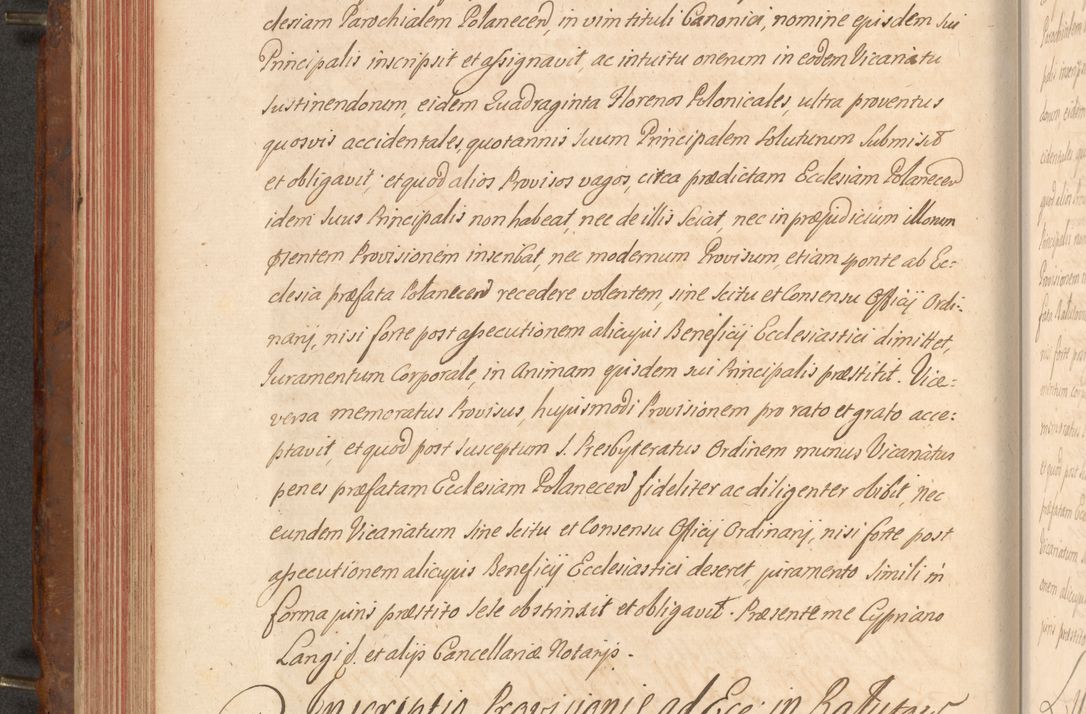 clesiam Parochialem Polanecen, in vim tituli Canonici, nomine ejusdem sui
Principalis inscripsit et assignavit, ac intuitu onerum in eodem Vicariatu
sustinendorum, eidem Quadraginta Florenos Polonicales, ultra proventus
quosvis accidentales, quotannis suum Principalem soluturum submisit
et obligavit; et quod alios Provisos vagos, circa prædictam Ecclesiam Polanecen
idem suus Principalis non habeat, nec de illis sciat, nec in præjudicium illorum
pñsentem Provisionem inscribat, nec modernum Provisum, etiam sponte ab Ec:
clesia præfata Polanecen recedere volentem, sine scitu et Consensu Officij Ordi:
narij, nisi forte post assecutionem alicujus Beneficij Ecclesiastici dimittet,
Juramentum Corporale, in Animam ejusdem sui Principalis præstitit. Vice:
versa memoratus Provisus, hujusmodi Provisionem pro rato et grato acce:
ptavit, et quod post susceptum S. Presbyteratus Ordinem munus Vicariatus
penes præfatam Ecclesiam Polanecen fideliter ac diligenter obibit, nec
eundem Vicariatum sine scitu et Consensu Officij Ordinarij, nisi forte post
assecutionem alicujus Beneficij Ecclesiastici deseret, juramento simili in
forma juris præstito sese obstrinxit et obligavit. Præsente me Cypriano
Langi et alijs Cancellariæ Notarijs.
Inscriptio Provisionis ad Eccl: in